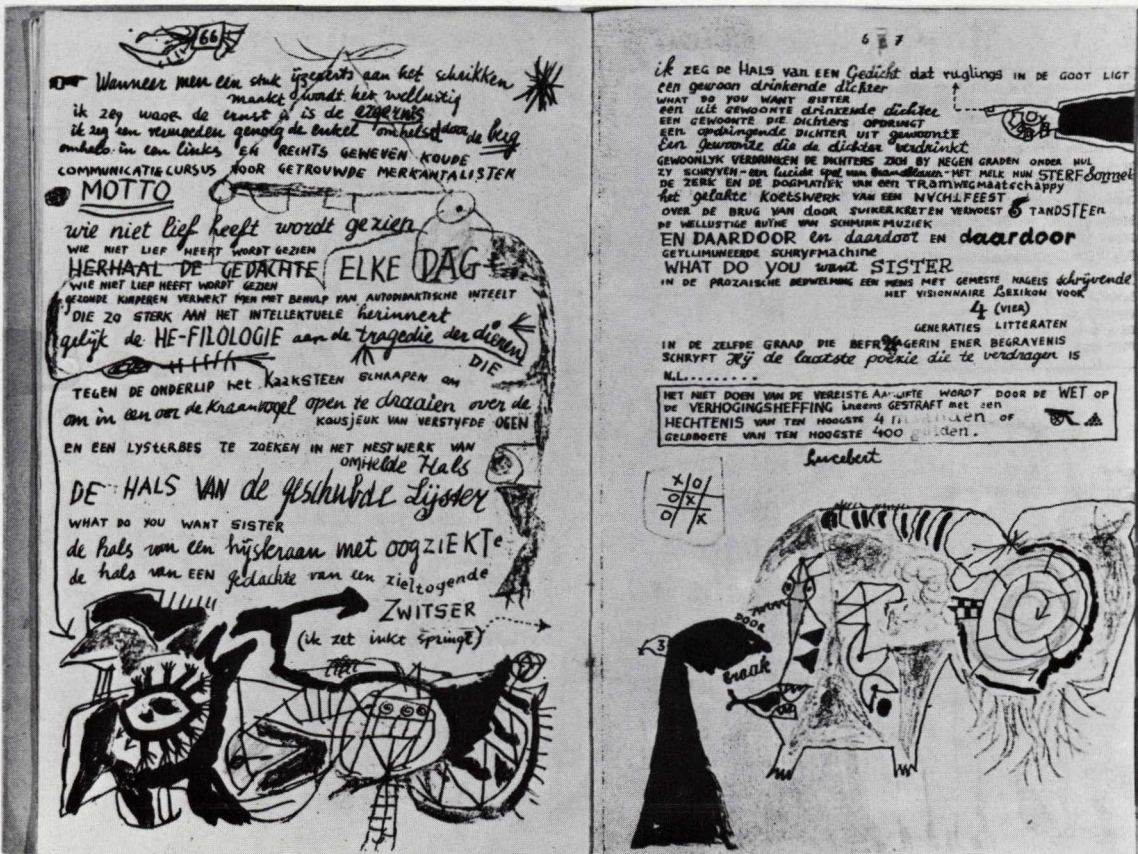 66
Wanneer men een stuk ijzererts aan het schrikken
maakt wordt het wellustig
ik zeg waar de ernst is is de ergernis
ik zeg een vermoeden genoeg de enkel omhelsd door de berg
omhels in een links EN RECHTS GEWEVEN KOUDE
COMMUNICATIECURSUS VOOR GETROUWDE MERKANTALISTEN
MOTTO
wie niet lief heeft wordt gezien
WIE NIET LIEF HEEFT WORDT GEZIEN
HERHAAL DE GEDACHTE ELKE DAG
WIE NIET LIEF HEEFT WORDT GEZIEN
GEZONDE KINDEREN VERWEKT MEN MET BEHULP VAN AUTODIDAKTISCHE INTEELT
DIE ZO STERK AAN HET INTELLEKTUELE herinnert
gelijk de HE-FILOLOGIE aan de tragedie der dieren
DIE
TEGEN DE ONDERLIP het KAAKSTEEN SCHRAPEN om
om in een oor de kraanvogel open te draaien over de
KOUSJEUK VAN VERSTYFDE OGEN
EN EEN LYSTERBES TE ZOEKEN IN HET NESTWERK VAN
OMHELDE Hals
DE HALS VAN de geschubde Lijster
WHAT DO YOU WANT SISTER
de hals van een hijskraan met oogZIEKTe
de hals van EEN gedachte van een zieltogende
ZWITSER
(ik zet inkt springt)
67
ik ZEG DE HALS van EEN Gedicht dat ruglings IN DE GOOT LIGT
een gewoon drinkende dichter
WHAT DO YOU WANT SISTER
een uit GEWOONTE drinkende dichter
EEN GEWOONTE DIE DICHTERS OPDRINGT
EEN opdringende DICHTER UIT gewoonte
Een gewoonte die de dichter verdrinkt
GEWOONLYK VERDRINKEN DE DICHTERS ZICH BY NEGEN GRADEN ONDER NUL
ZY SCHRYVEN - een lucide spel van brandklaver - MET MELK HUN STERFSonnet
DE ZERK EN DE DOGMATIEK VAN een TRAMwegmaatschappy
het gelakte KOETSWERK VAN EEN NACHTFEEST
OVER DE BRUG VAN door SUIKERKRETEN VERWOEST TANDSTEEN
DE WELLUSTIGE RUÏNE VAN SCHMINKMUZIEK
EN DAARDOOR en daardoor EN daardoor
GETLLIMUNEERDE SCHRYFMACHINE
WHAT DO YOU want SISTER
IN DE PROZAISCHE BEDWELMING EEN MENS MET GEMESTE NAGELS schrijvende
HET VISIONNAIRE LEXIKON VOOR
4 (VIER)
GENERATIES LITTERATEN
IN DE ZELFDE GRAAD DIE BEFR AGERIN ENER BEGRAVENIS
SCHRYFT Hij de laatste poëzie die te verdragen is
N.L.........
HET NIET DOEN VAN DE VEREISTE AANGIFTE WORDT DOOR DE WET OP
DE VERHOGINGSHEFFING ineens GESTRAFT met een
HECHTENIS VAN TEN HOOGSTE 4 maanden OF
GELDBOETE VAN TEN HOOGSTE 400 gulden.
Lucebert
X O
O X X
O X
ALIKI
DOOR
braak
3